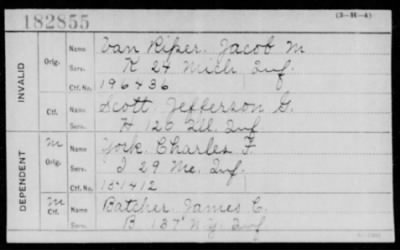 182855
(3-H-4)
INVALID
Orig. Name Van Riper, Jacob M
Serv. K 24 Mich. Inf.
Ctf. No. 196436
Ctf. Name Scott Jefferson G.
Serv. H 120 Ill. Inf
DEPENDENT
M Orig. Name York Charles F.
Serv. I 29 Me. Inf.
Ctf. No. 151412
M Ctf. Name Batcher James C.
Serv. B 137 N.Y. Inf